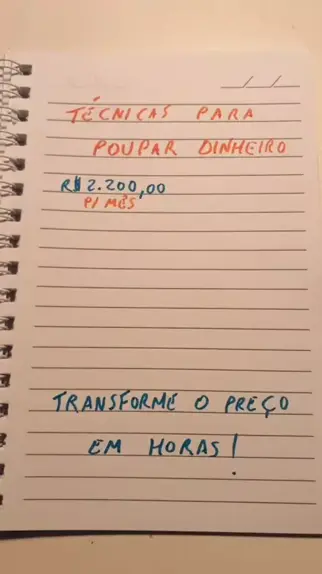 TÉCNICAS PARA
POUPAR DINHEIRO
R$2.200,00
P/ MÊS
TRANSFORME O PREÇO
EM HORAS!